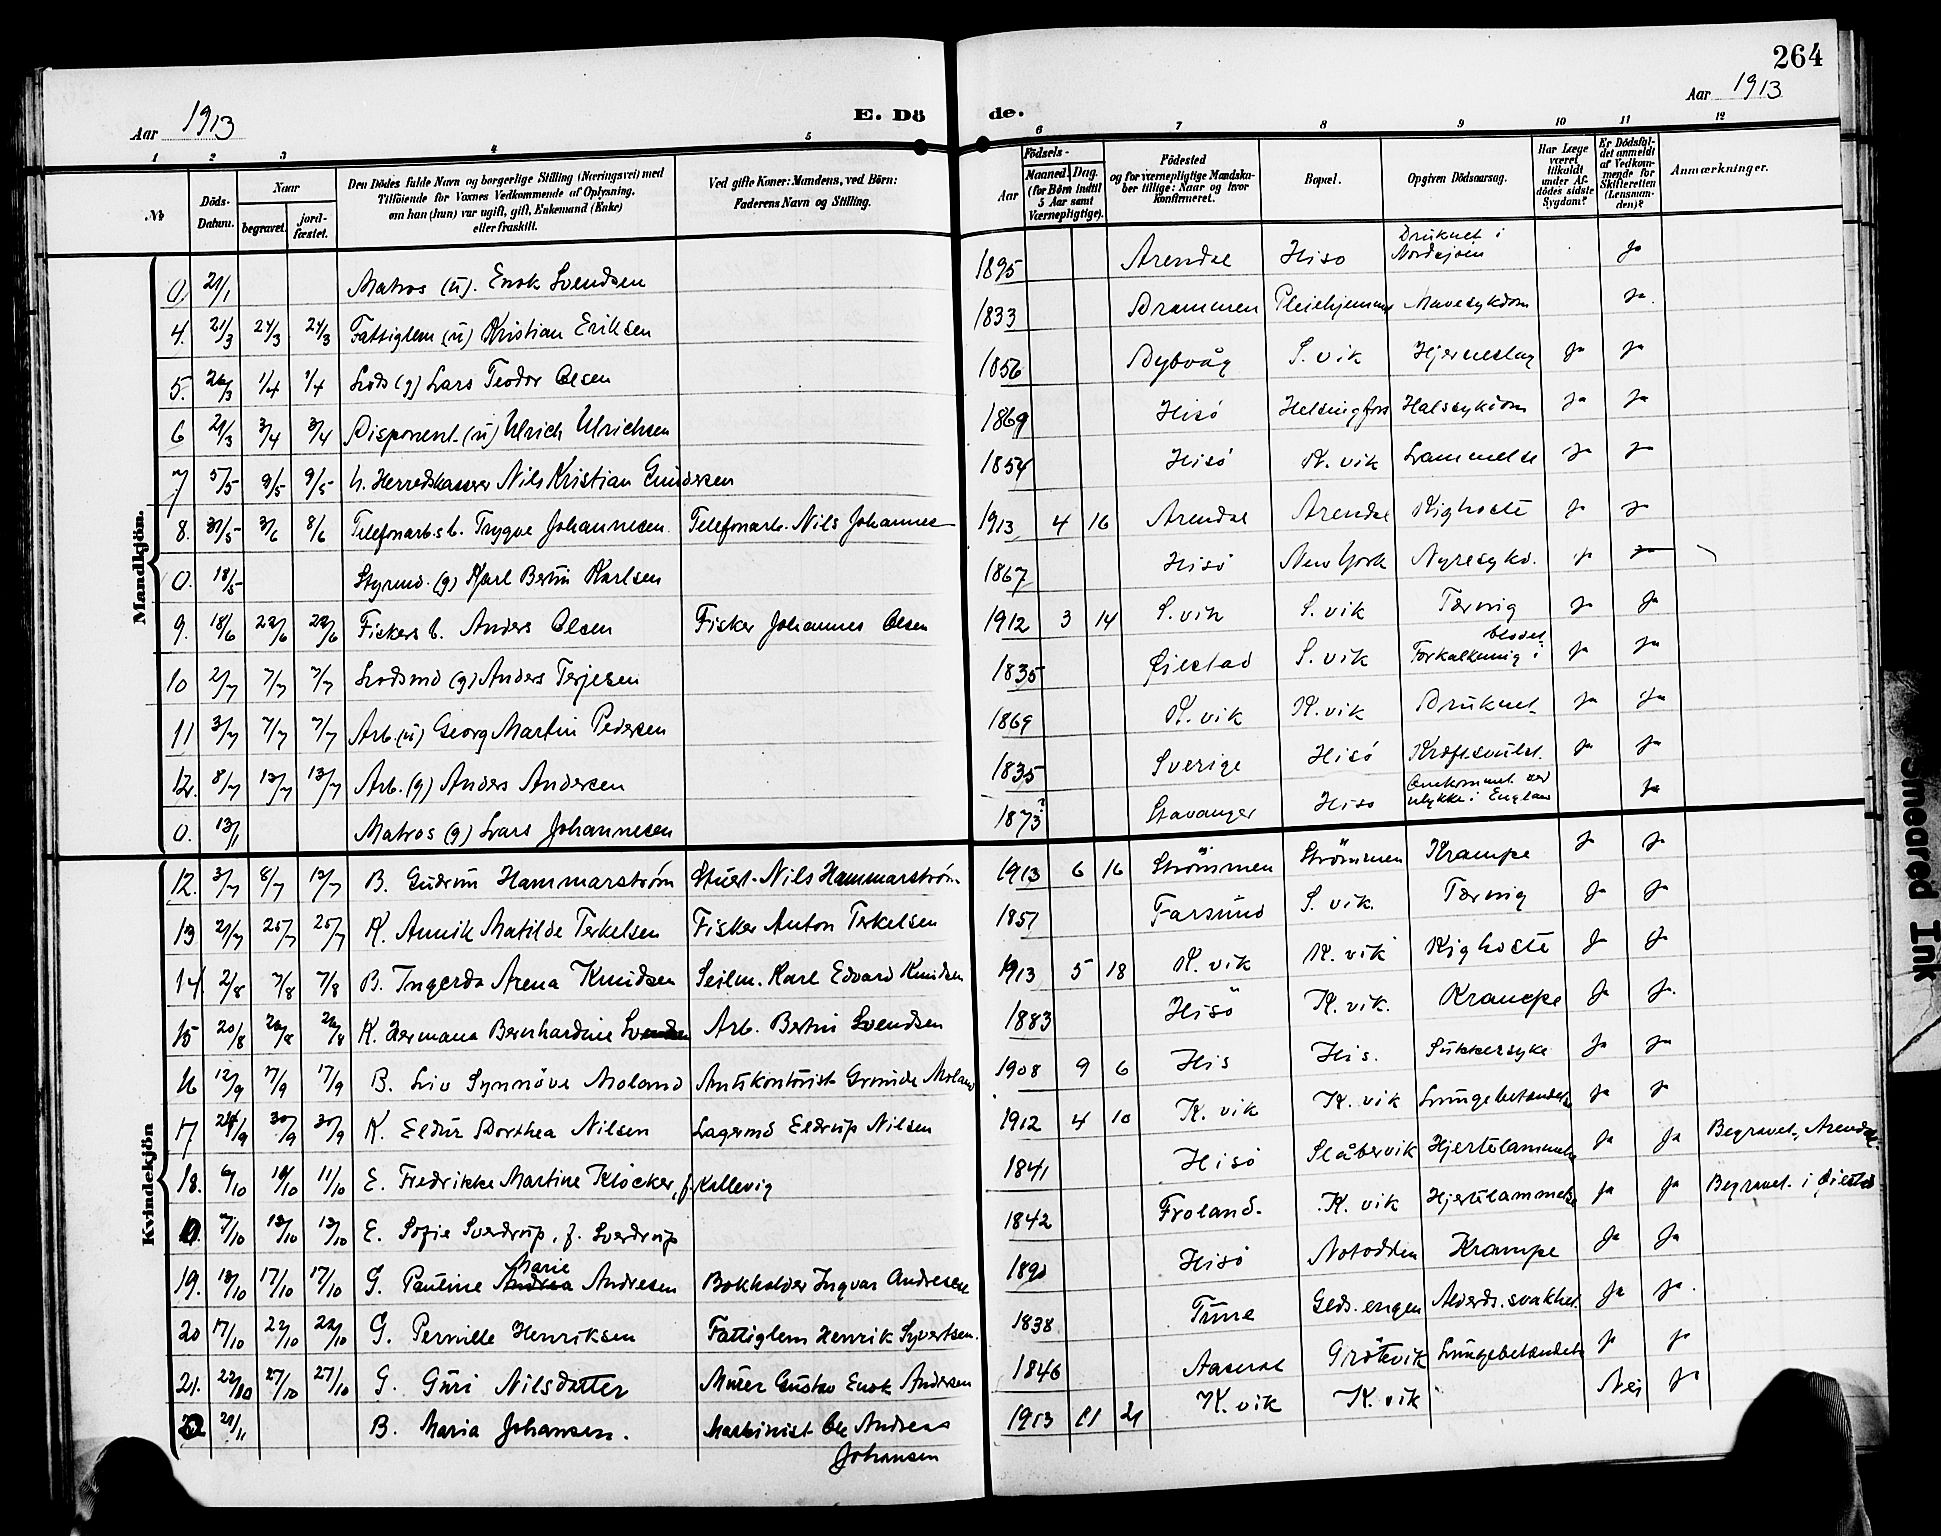 264
Aar 1913
E. Dö de.
Aar 1913
1 2 3 4 5 6 7 8 9 10 11 12
№
Döds-Datum.
Naar
begravet.
jord-fæstet.
Den Dödes fulde Navn og borgerlige Stilling (Næringsvei) med
Tilföiende for Voxnes Vedkommende af Oplysning,
om han (hun) var ugift, gift, Enkemand (Enke)
eller fraskilt.
Ved gifte Koner: Mandens, ved Börn:
Faderens Navn og Stilling.
Födsels-
Aar
Maaned. Dag.
(for Börn indtil
5 Aar samt
Værnepligtige).
Födested
og for værnepligtige Mandska-
ber tillige: Naar og hvor
konfirmeret.
Bopæl.
Opgiven Dödsaarsag.
Har Læge
været
tilkaldt
under Af-
dödes sidste
Sygdom?
Er Dödsfal-
det anmeldt
af Vedkom-
mende for
Skifteretten
(Lensman-
den)?
Anmærkninger.
Mandkjön.
0. 21/1 Matros (u). Enok Svendsen 1895 Arendal Hisö Druknet i Nordsjöen Ja
4. 21/3 24/3 24/3 Fattiglem (u) Kristian Eriksen 1833 Drammen Pleiehjemmet Mavesykdom Ja.
5. 26/3 1/4 1/4 Lods (g) Lars Teodor Olsen 1856 Dybvåg S. vik Hjerneslag Ja Ja
6 29/3 3/4 3/4 Disponent (u) Ulrich Ulrichsen 1869 Hisö Helsingfors Halssykdom Ja Ja
7 5/5 9/5 9/5 h. Herredskasserer Nils Kristian Gundersen 1854 Hisö K. vik Lammelse Ja Ja
8. 31/5 3/6 8/6 Telefonarb. s b. Trygve Johannesen Telefonarb. Nils Johannes 1913 4 16 Arendal Arendal Kighoste Ja Ja
0. 18/5 Styrmd. (g) Karl Bertin Karlsen 1867 Hisö New York Nyresykd. Ja Ja
9. 18/6 22/6 22/6 Fiskers b. Anders Olsen Fisker Johannes Olsen 1912 3 14 S. vik S. vik Tæring Ja Ja
10 2/7 7/7 7/7 Lodsmd (g) Anders Terjesen 1835 Öiestad S. vik Forkalkning i blodet Ja Ja
11 3/7 7/7 7/7 Arb. (u) Georg Martin Pedersen 1869 K. vik K. vik Druknet Ja Ja
12. 8/7 13/7 13/7 Arb. (g) Anders Andersen 1835 Sverige Hisö Kræftsvulst. Ja Ja
0. 13/1 Matros (g) Lars Johannesen 1873? Stavanger Hisö Omkommet ved ulykke i England Ja
Kvindekjön
12. 3/7 8/7 13/7 B. Gudrun Hammarström Stuert. Nils Hammarström. 1913 6 16 Strömmen Strömmen Krampe Ja Ja
13 21/7 25/7 25/7 K. Annik Matilde Terkelsen Fisker Anton Terkelsen 1857 Farsund S. vik. Tæring Ja Ja
14. 2/8 7/8 7/8 B. Ingerda Arena Knudsen Seilm. Karl Edvard Knudsen 1913 5 18 K. vik K. vik Kighoste Ja Ja
15 20/8 26/8 26/8 K. Hermana Bernhardine Svendsen Arb. Bertin Svendsen 1883 Hisö K. vik. Krampe Ja Ja.
16 12/9 17/9 17/9 B. Liv Synnöve Moland Amtskontorist Grunde Moland 1908 9 6 His His. Sukkersyke Ja Ja
17 24/9 30/9 30/9 K. Eldur Dorthea Nilsen Lagermd Eldrup Nilsen 1912 4 10 K. vik K. vik Lungebetændelse Ja Ja
18. 6/10 10/10 11/10 E. Fredrikke Martine Klöcker, f. Kallevig 1841 Hisö Slåbervik Hjertelammelse Ja Ja Begravet, Arendal.
0. 7/10 13/10 13/10 E. Sofie Sverdrup, f. Sverdrup 1842 Froland. K. vik Hjertelammelse Ja Ja Begravet i Öiestad
19. 13/10 17/10 17/10 G. Pauline Andrea Marie Andresen Bokholder Ingvar Andresen 1890 Hisö Notodden Krampe Ja Ja
20 17/10 22/10 22/10 G. Pernille Henriksen Fattiglem Henrik Syvertsen. 1838 Tune Geds. engen Alderds. svakhet Ja Ja.
21. 22/10 27/10 27/10 G. Guri Nilsdatter Murer Gustav Enok Andersen 1846 Aaseral Grötvik Lungebetændelse Ja Ja
0 21/11 B. Maria Johansen. Maskinist Ole Andreas Johansen 1913 11 21 K. vik K. vik Nei Ja
Smeared Ink